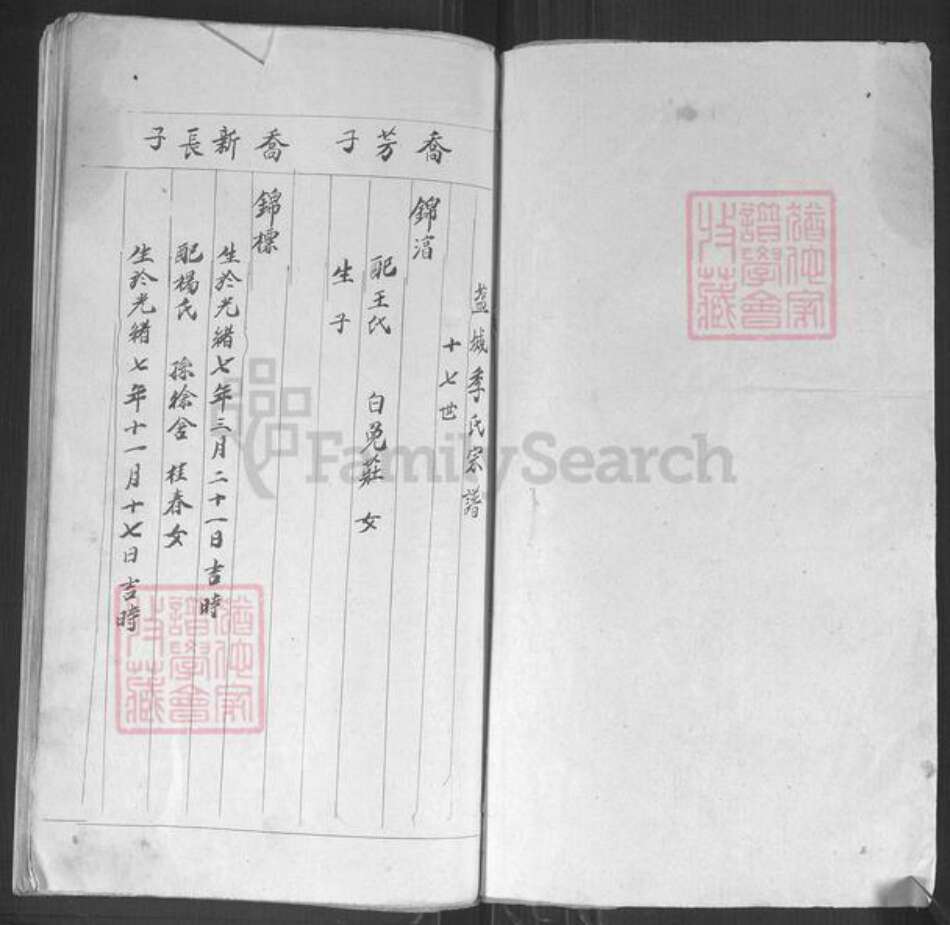 盐城季氏宗譜
十七世
喬芳子
錦濱
配王氏 白兎莊 女
生子
喬新長子
錦標
生於光緒七年三月二十一日吉時
配楊氏 孫徐舍 桂春女
生於光緒七年十一月十七日吉時
猶他家譜學會收藏
猶他家譜學會收藏
FamilySearch